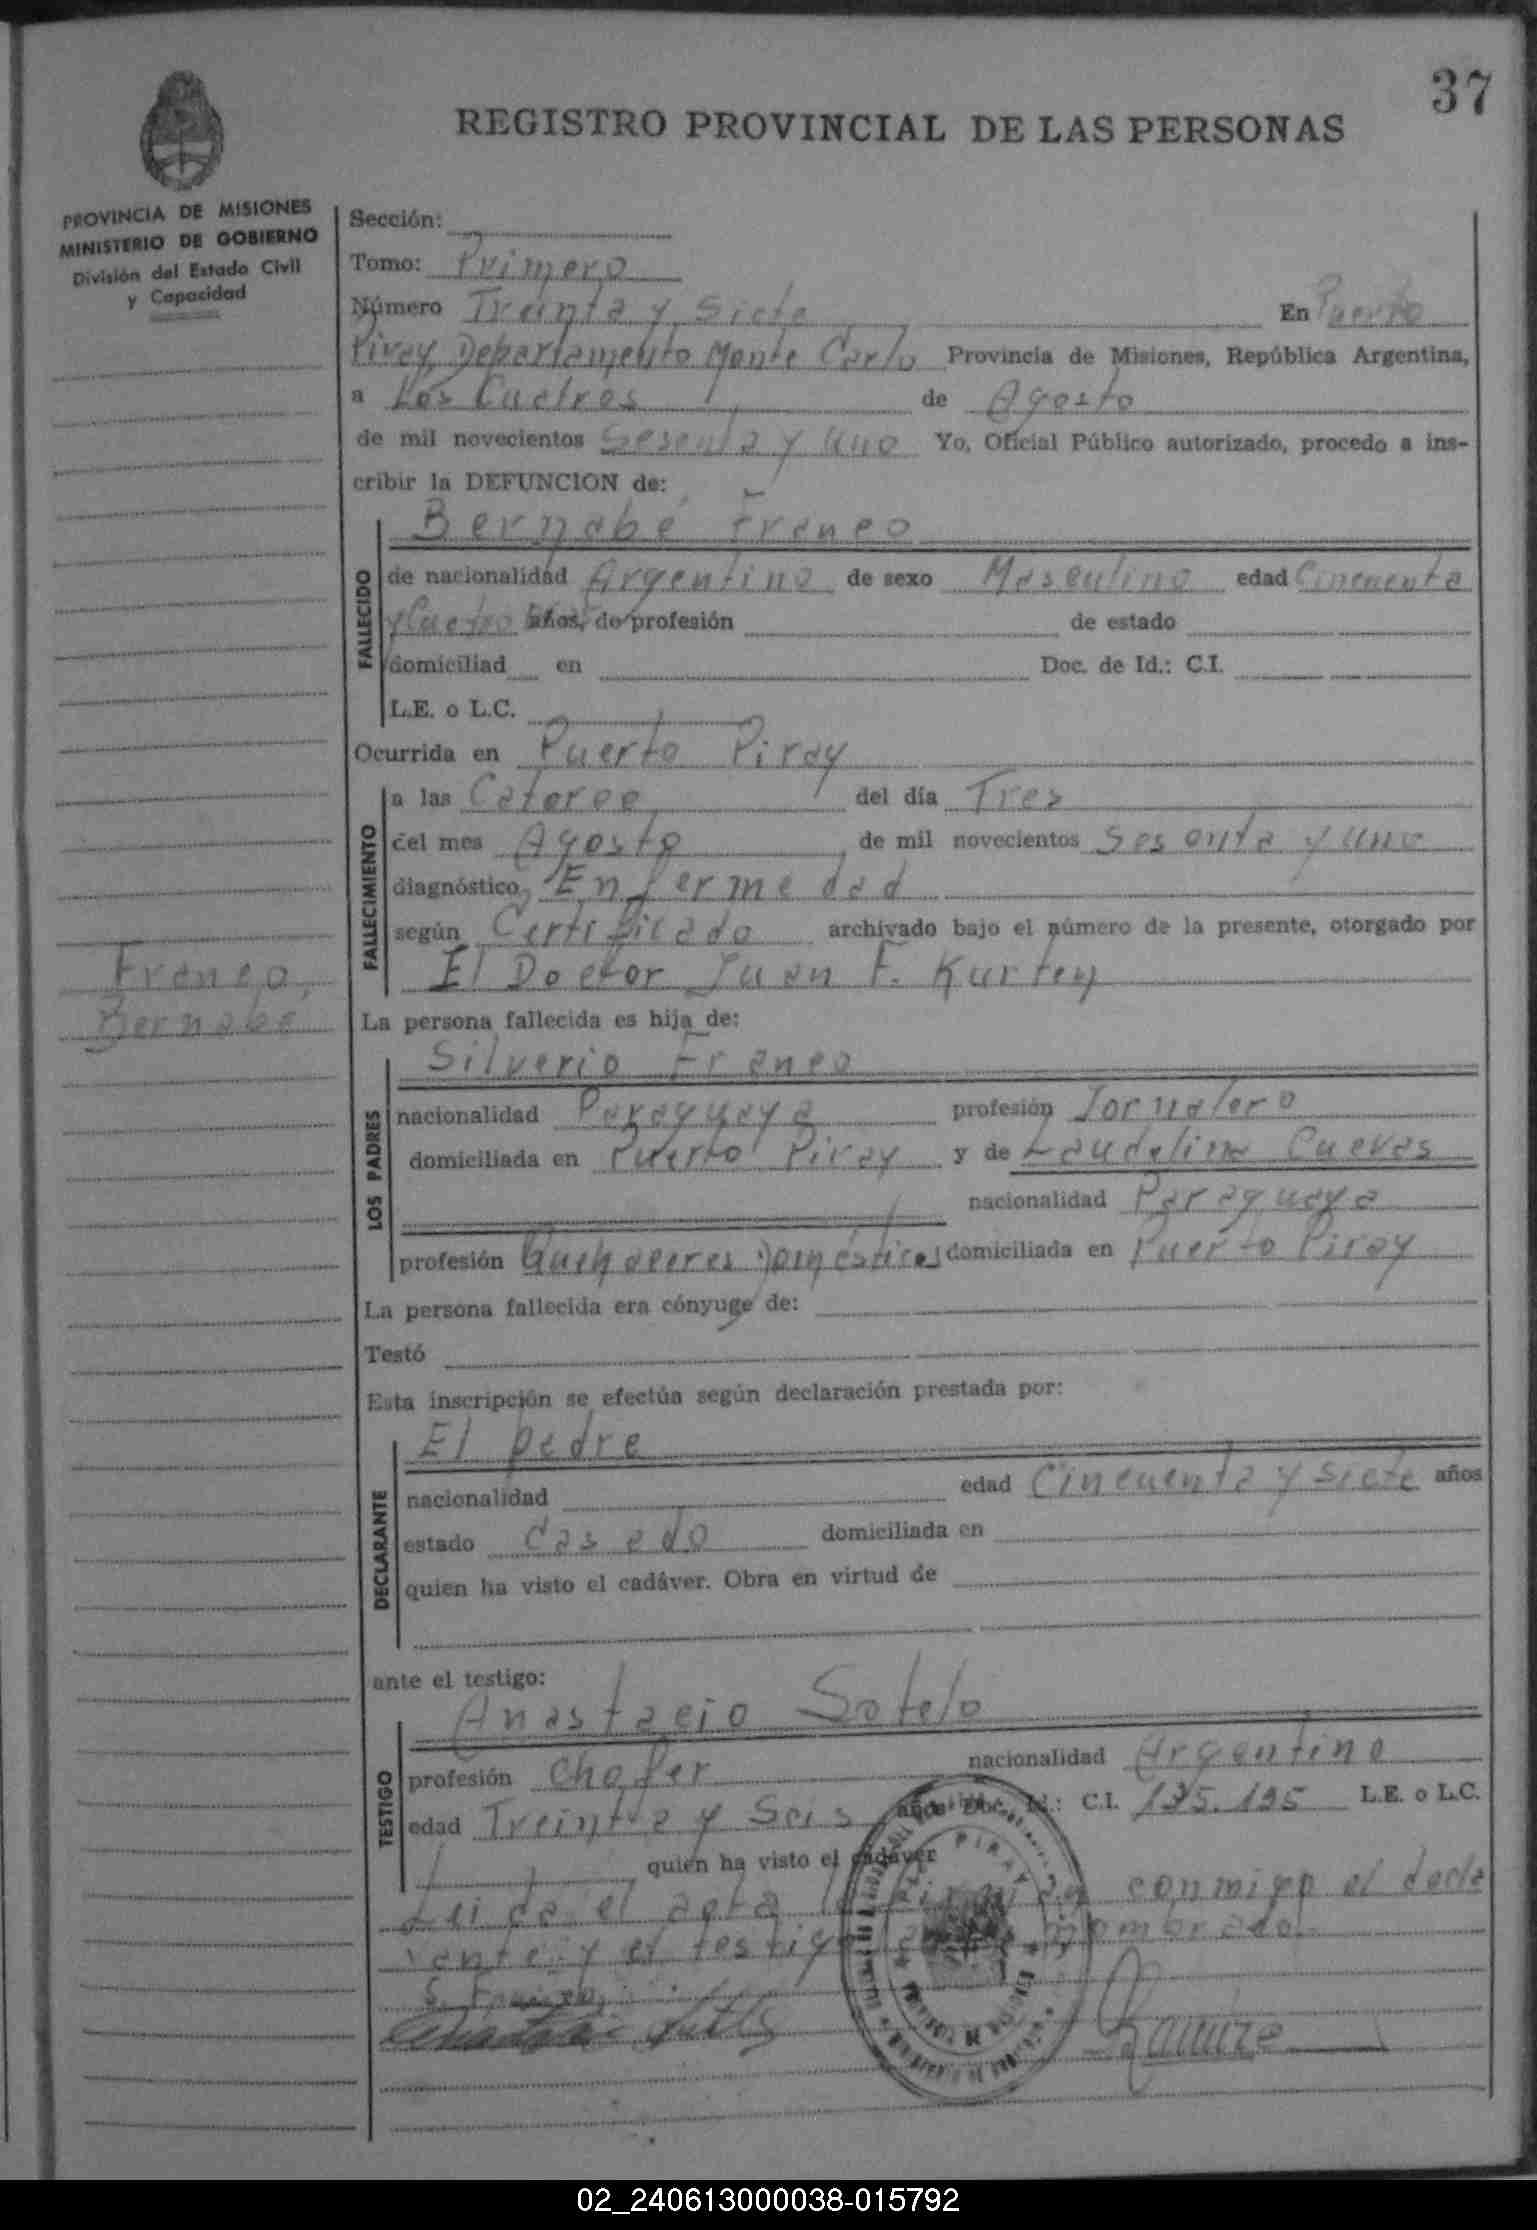 37
REGISTRO PROVINCIAL DE LAS PERSONAS
PROVINCIA DE MISIONES
MINISTERIO DE GOBIERNO
División del Estado Civil
y Capacidad
Sección:
Tomo: Primero
Número Treinta y Siete En Puerto
Piray, Departamento Monte Carlo Provincia de Misiones, República Argentina,
a Los Cuatros de Agosto
de mil novecientos Sesenta y uno Yo, Oficial Público autorizado, procedo a ins-
cribir la DEFUNCION de:
Bernabé Franco
FALLECIDO
de nacionalidad Argentino de sexo Masculino edad Cincuenta
y Cuatro años, de profesión de estado
domiciliad en Doc. de Id.: C.I.
L.E. o L.C.
Ocurrida en Puerto Piray
FALLECIMIENTO
a las Catorce del día Tres
del mes Agosto de mil novecientos Sesenta y uno
diagnóstico Enfermedad
según Certificado archivado bajo el número de la presente, otorgado por
El Doctor Juan F. Kurtey
Franco,
Bernabé
La persona fallecida es hija de:
Silverio Franco
LOS PADRES
nacionalidad Paraguaya profesión Jornalero
domiciliada en Puerto Piray y de Laudelina Cuevas
nacionalidad Paraguaya
profesión Quehaceres Domésticos domiciliada en Puerto Piray
La persona fallecida era cónyuge de:
Testó
Esta inscripción se efectúa según declaración prestada por:
El padre
DECLARANTE
nacionalidad edad Cincuenta y siete años
estado Casado domiciliada en
quien ha visto el cadáver. Obra en virtud de
ante el testigo:
Anastacio Sotelo
TESTIGO
profesión Chofer nacionalidad Argentino
edad Treinta y Seis años Doc. Id.: C.I. 135.195 L.E. o L.C.
quien ha visto el cadáver
Leida el acta la firman conmigo el decla
rante y el testigo nombrado.
S. Franco
PIRAY
02_240613000038-015792